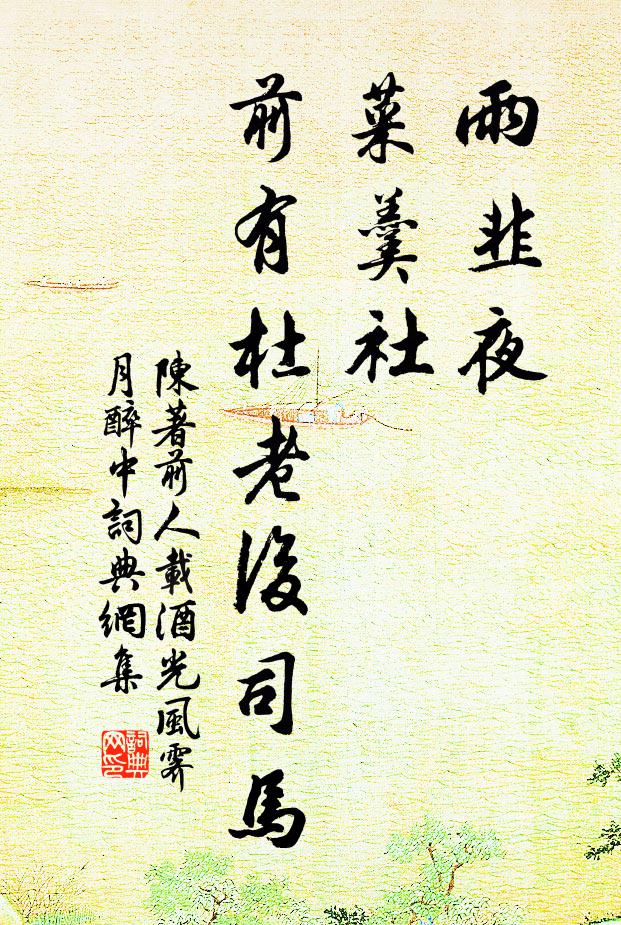 雨韭夜
菜羹社
前有杜老後司馬
陳著前人載酒光風霽
月醉中詞典網集
詞典
网印